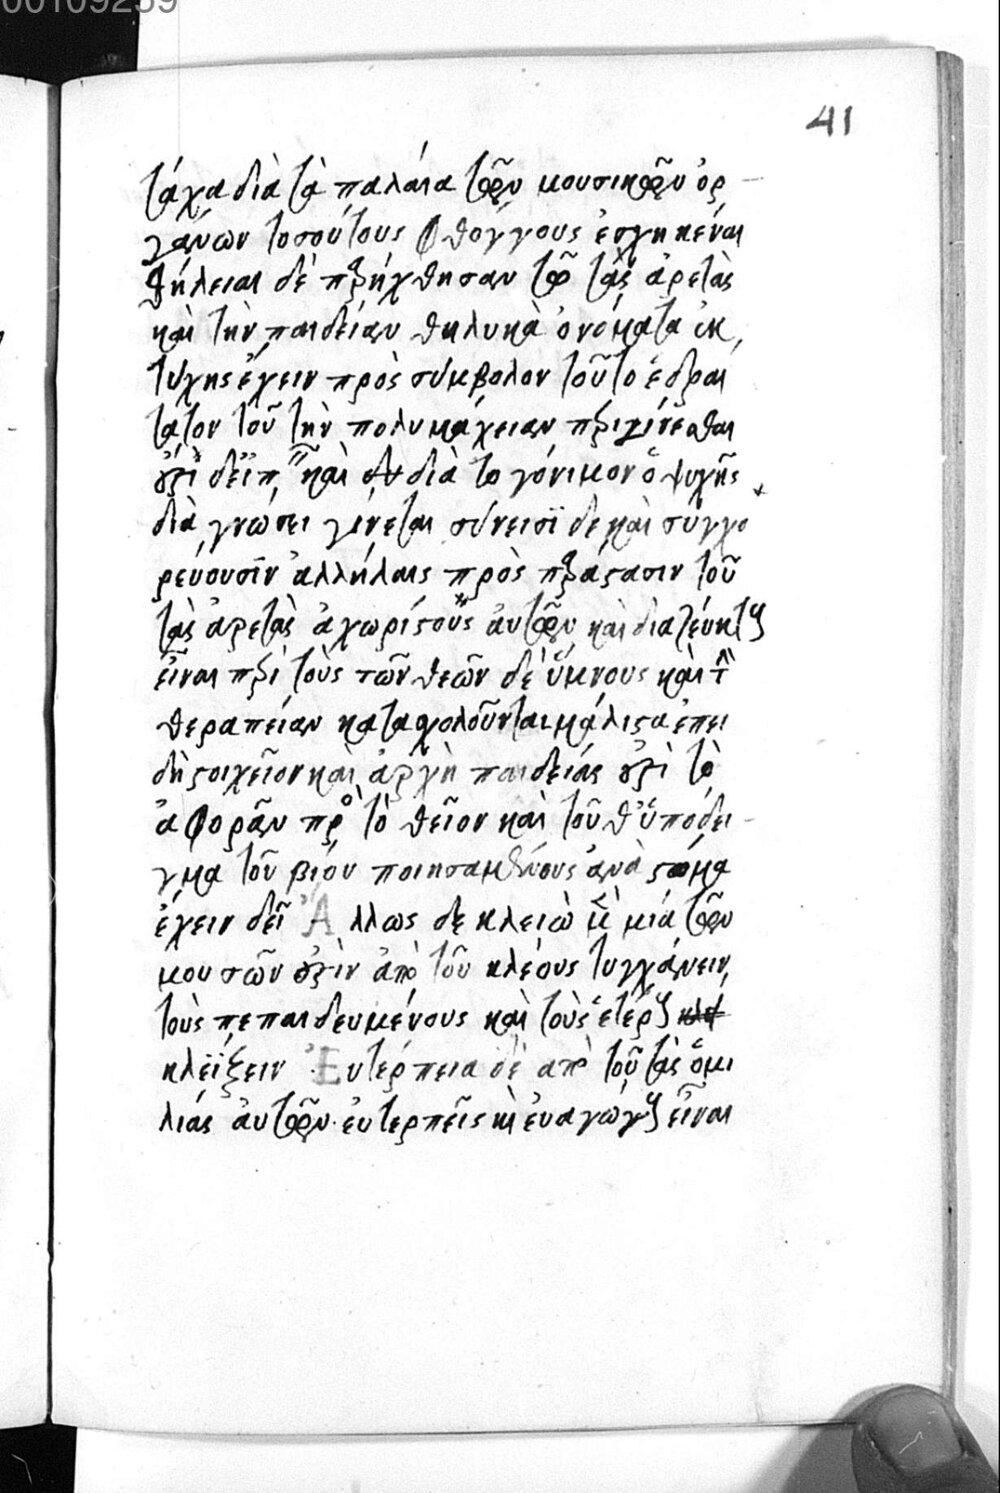 00109259
41
τάχα διὰ τὰ παλαιὰ τῶν μουσικῶν ὀρ-
γάνων τοσούτους φθόγγους ἐσχηκέναι
θήλειαι δὲ παρήχθησαν τῷ τὰς ἀρετὰς
καὶ τὴν παιδείαν θηλυκὰ ὀνόματα ἐκ
τύχης ἔχειν πρὸς σύμβολον τοῦτο ἑδραι
τάτον τοῦ τὴν πολυμάχειαν περιγίνεσθαι
καὶ διὰ τὸ γόνιμον ὁ ψυχῆς
διὰ γνώσει γίνεται σύνεισϊ δε καὶ συγχο
ρεύουσϊν ἀλλήλαις πρὸς παράστασιν τοῦ
τὰς ἀρετὰς ἀχωρίστους ἀυτῶν καὶ διαζεύκτους
εἶναι περὶ τοὺς τῶν θεῶν δὲ ὕμνους καὶ τὴν
θεραπείαν κατασχολοῦνται μάλιστα ἐπει
δὴ στοιχεῖον καὶ ἀρχὴ παιδείας ἐστὶ τὸ
ἀφορᾶν πρὸς τὸ θεῖον καὶ τοῦθ ὑπόδει-
γμα τοῦ βίου ποιησαμένους ἀνὰ στόμα
ἔχειν δεῖ Ἄλλως δε κλειὼ μὲν μία τῶν
μουσῶν ἐστὶν ἀπὸ τοῦ κλέους τυγχάνειν
τοὺς πεπαιδευμένους καὶ τοὺς ἑτέρους
κλεϊίζειν Ἐυτέρπεια δὲ απὸ τοῦ τὰς ὁμι
λιάς ἀυτῶν ἐυτερπεῖς καὶ ἐυαγώγους εἶναι